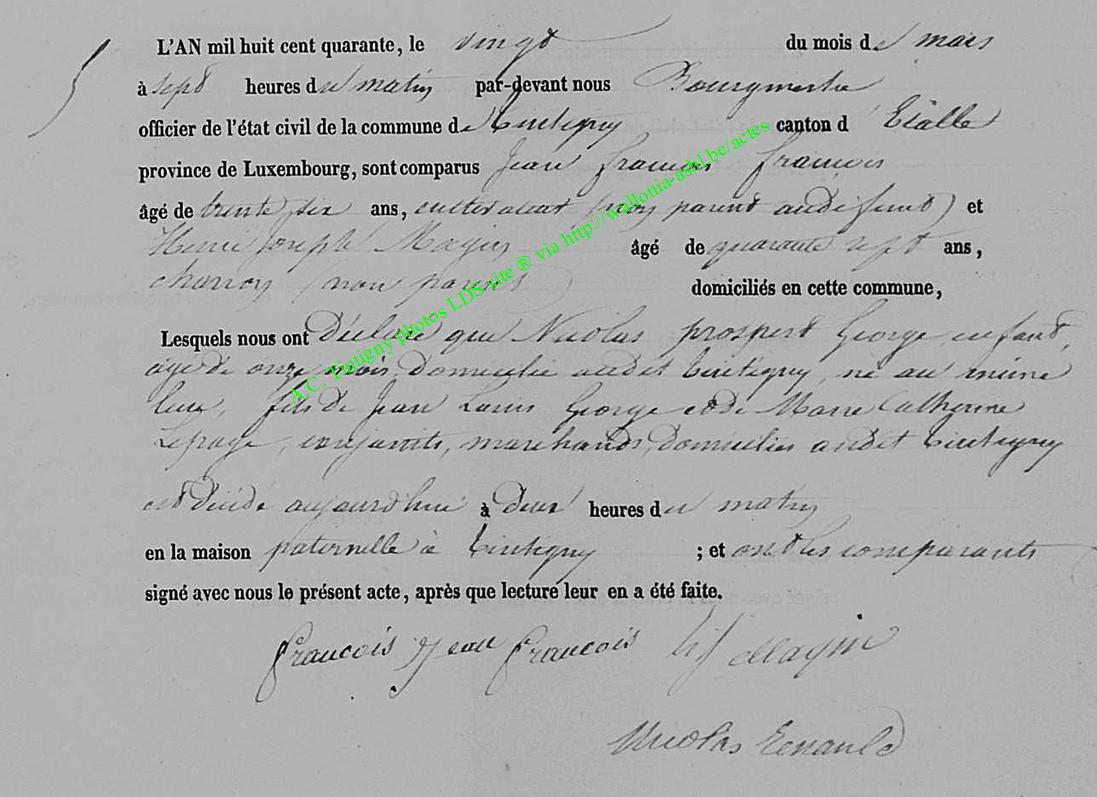 L'AN mil huit cent quarante, le vingt du mois de mars
à sept heures du matin par-devant nous Bourgmestre
officier de l'état civil de la commune de Tintigny canton d'Etalle
province de Luxembourg, sont comparus Jean françois françois
âgé de trente six ans, cultivateur (non parent audit defunt) et
Henri Joseph Magin âgé de quarante sept ans,
charron (non parent) domiciliés en cette commune,
Lesquels nous ont Déclaré que Nicolas prospert George, enfant,
âgé de onze mois, domicilié audit Tintigny, né au même
lieu, fils de Jean Louis George et de Marie Catherine
Lepage, conjoints, marchands, domiciliés audit Tintigny
est décédé aujourd'hui à deux heures du matin
en la maison paternelle à Tintigny ; et ont les comparants
signé avec nous le présent acte, après que lecture leur en a été faite.
francois Jean francois hj Magin
Nicolas Renauld
A.C. Tintigny photos LDS site ® via http://wallonia-asbl.be/actes